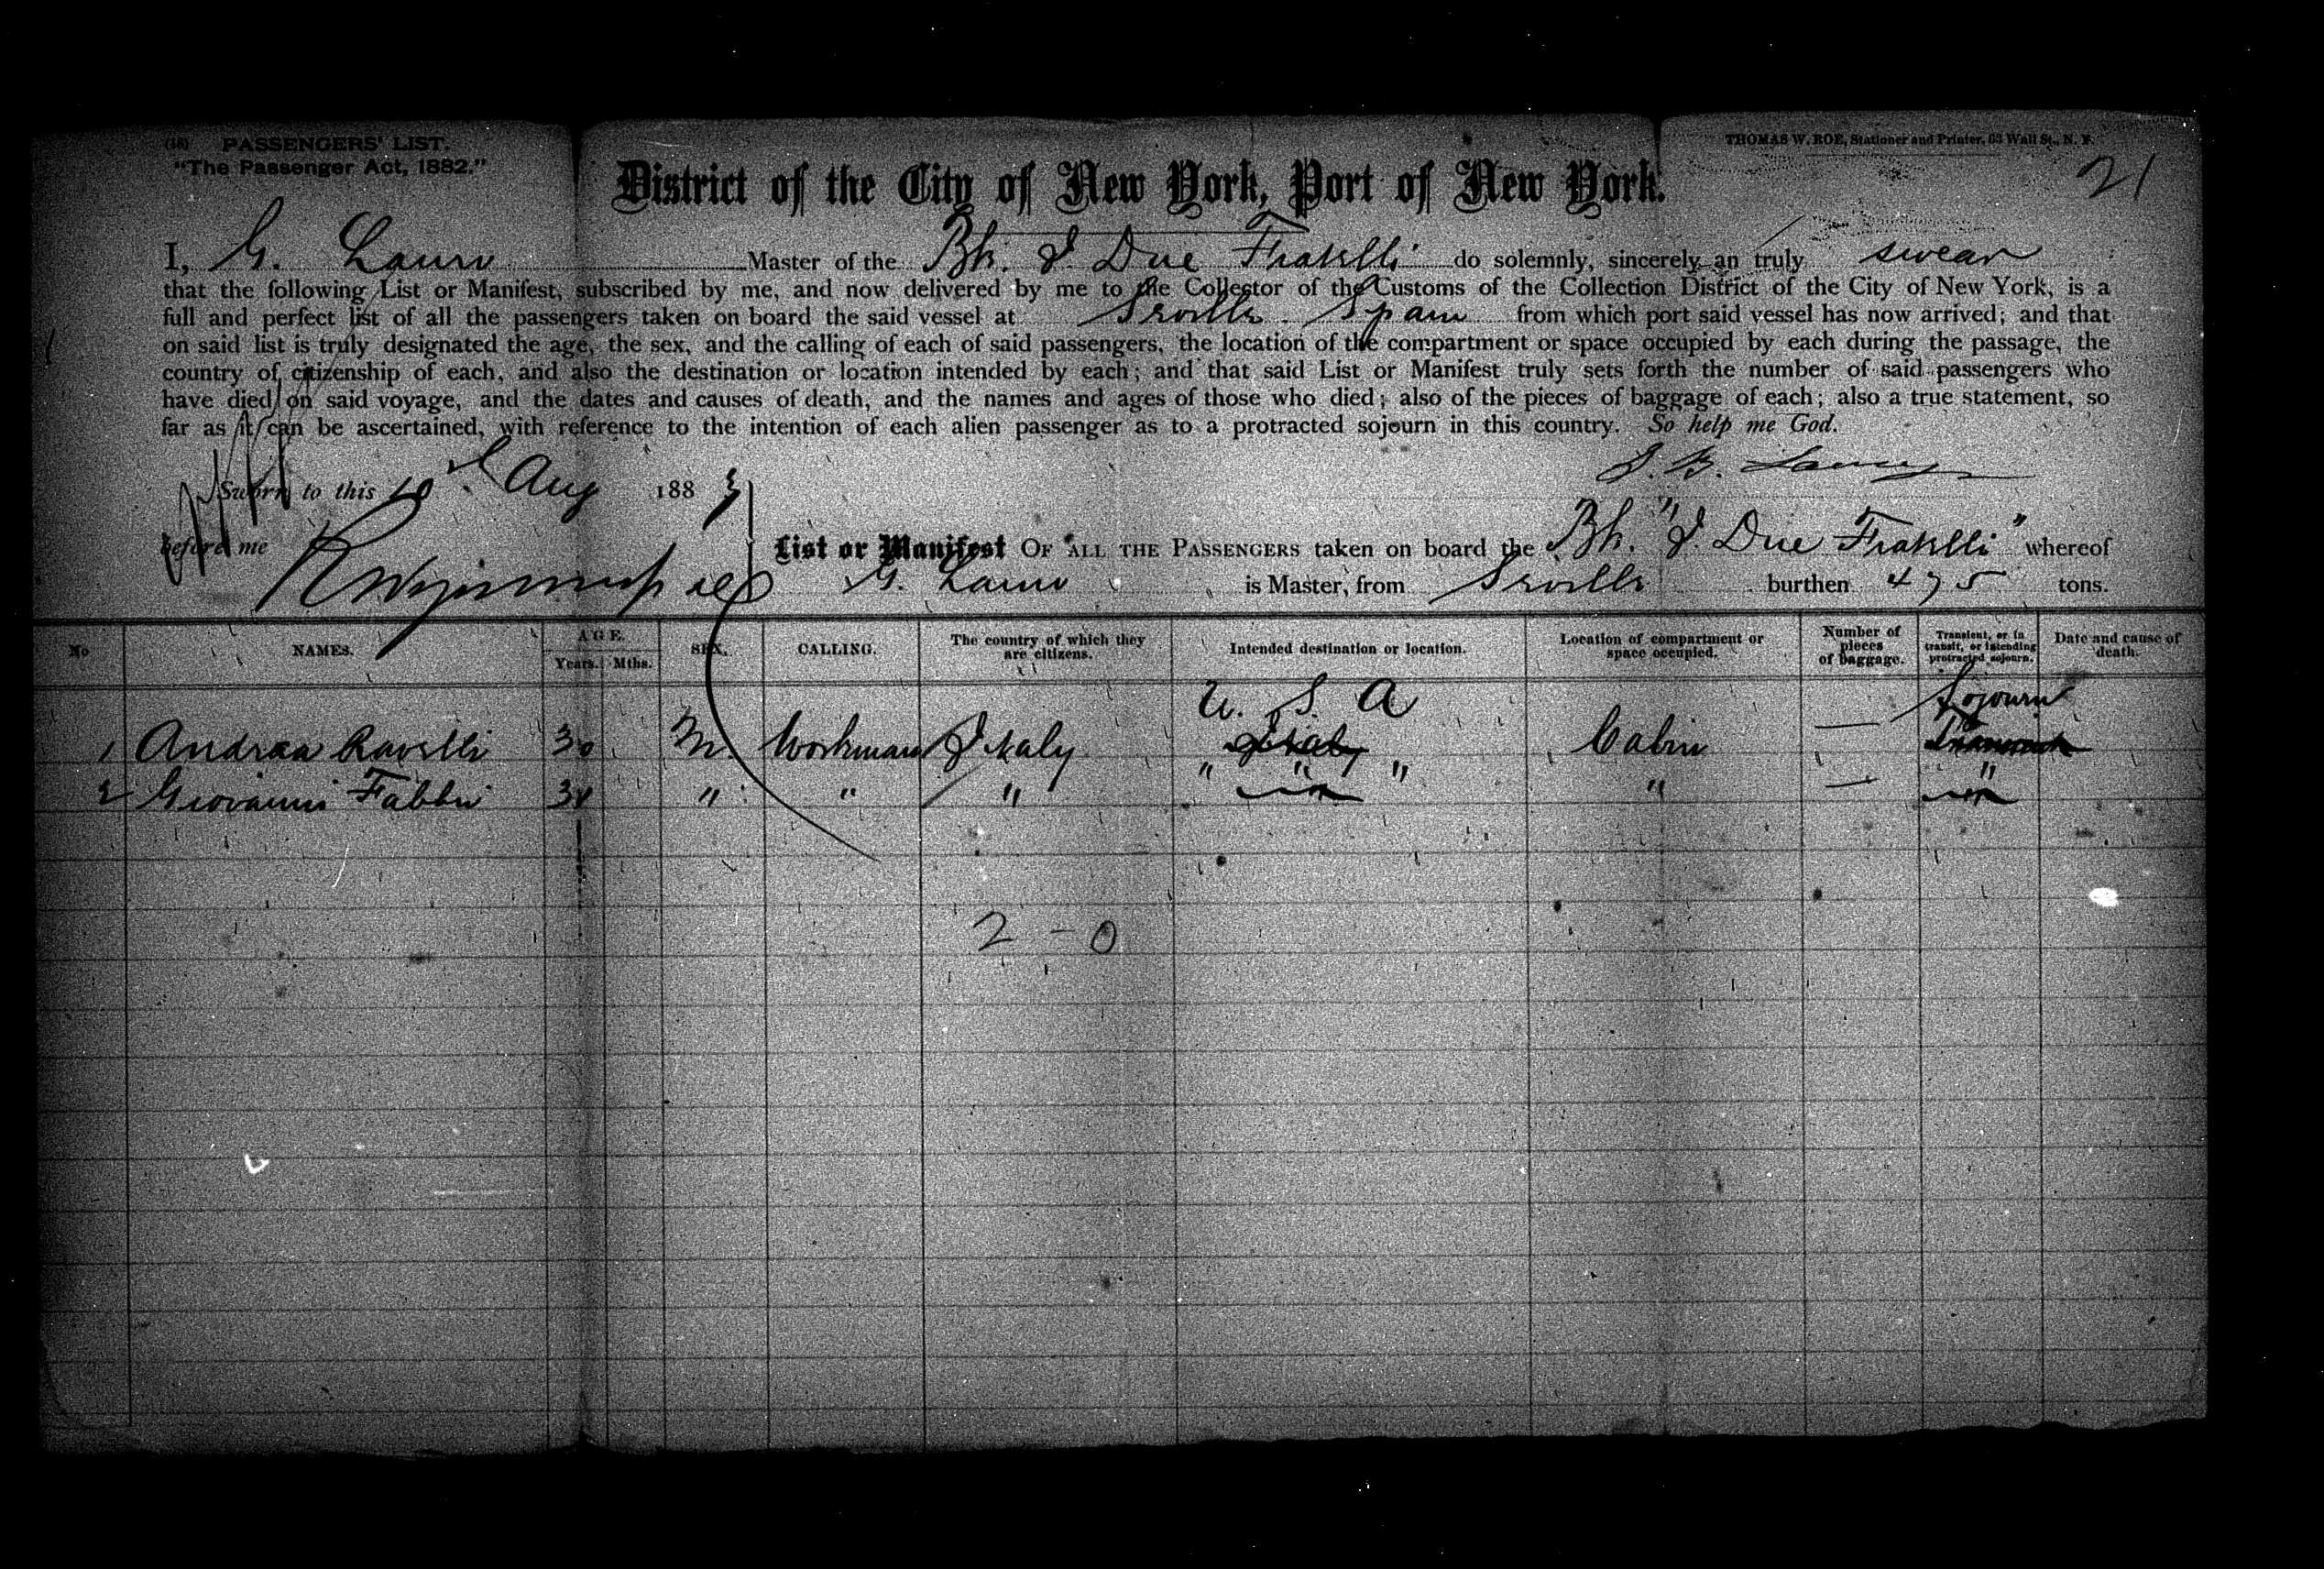 (18) PASSENGERS' LIST.
"The Passenger Act, 1882."
THOMAS W. ROE, Stationer and Printer, 63 Wall St., N. Y.
21
District of the City of New York, Port of New York.
I, G. Lauro Master of the Bk. I Due Fratelli do solemnly, sincerely an truly swear
that the following List or Manifest, subscribed by me, and now delivered by me to the Collector of the Customs of the Collection District of the City of New York, is a
full and perfect list of all the passengers taken on board the said vessel at Seville Spain from which port said vessel has now arrived; and that
on said list is truly designated the age, the sex, and the calling of each of said passengers, the location of the compartment or space occupied by each during the passage, the
country of citizenship of each, and also the destination or location intended by each; and that said List or Manifest truly sets forth the number of said passengers who
have died on said voyage, and the dates and causes of death, and the names and ages of those who died; also of the pieces of baggage of each; also a true statement, so
far as it can be ascertained, with reference to the intention of each alien passenger as to a protracted sojourn in this country. So help me God.
Sworn to this 10 Aug 1883
before me
List or Manifest OF ALL THE PASSENGERS taken on board the Bk. "I Due Fratelli" whereof
G. Lauro is Master, from Seville burthen 475 tons.
No NAMES. AGE. Years. Mths. SEX. CALLING. The country of which they are citizens. Intended destination or location. Location of compartment or space occupied. Number of pieces of baggage. Transient, or in transit, or intending protracted sojourn. Date and cause of death.
U. S. A Sojourn
1 Andrea Ravelli 30 M. Workman Italy Italy Cabin —
2 Giovanni Fabbri " " " " " " " — "
2 - 0